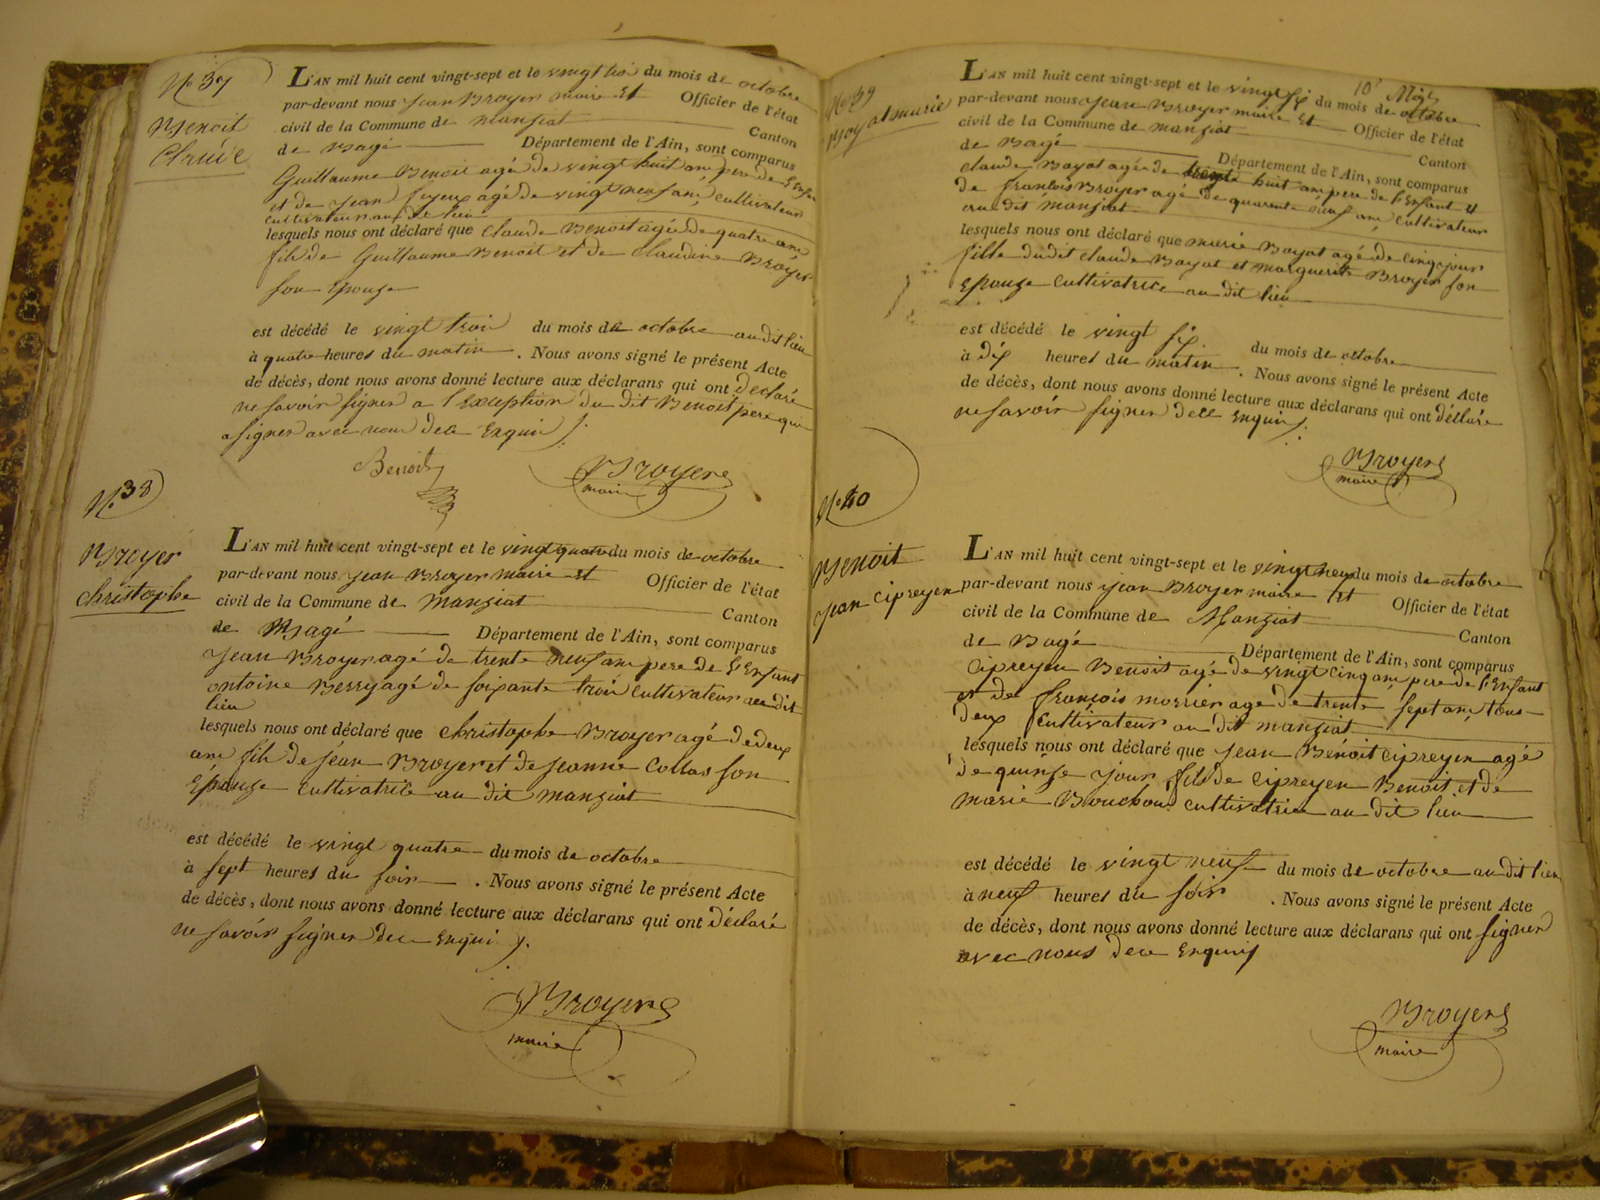 No 37
Benoit
Claude
L'AN mil huit cent vingt-sept et le vingt troi du mois de octobre
par-devant nous jean Broyer maire Et Officier de l'état
civil de la Commune de manziat Canton
de Bagé Département de l'Ain, sont comparus
Guillaume Benoit agé de vingt huit an pere de l'Enfan
et de jean agé de vingt neuf an, cultivateur
cultivateur au dit lieu
lesquels nous ont déclaré que claude Benoit agé de quatre an
fils de Guillaume Benoit et de Claudine Broyer
son Epouze
est décédé le vingt troi du mois de octobre au dit lieu
à quatre heures du matin. Nous avons signé le présent Acte
de décès, dont nous avons donné lecture aux déclarans qui ont déclaré
ne savoir signer a l'Exception du dit Benoit pere qui
a signer avec nous de ce Enquis
Benoit
Broyer
maire
No 38
Broyer
christophe
L'AN mil huit cent vingt-sept et le vingt quatre du mois de octobre
par-devant nous jean Broyer maire Et Officier de l'état
civil de la Commune de manziat Canton
de Bagé Département de l'Ain, sont comparus
jean Broyer agé de trente neuf an pere de l'Enfant
antoine Berry agé de soixante troi cultivateur au dit
lieu
lesquels nous ont déclaré que christophe Broyer agé de deux
an fils de jean Broyer et de jeanne Collas son
Epouze cultivatrice au dit manziat
est décédé le vingt quatre du mois de octobre
à sept heures du soir. Nous avons signé le présent Acte
de décès, dont nous avons donné lecture aux déclarans qui ont déclaré
ne savoir signer de ce Enqui
Broyer
maire
10e
No 39
Boyat marie
L'AN mil huit cent vingt-sept et le vingt six du mois de octobre
par-devant nous jean Broyer maire Et Officier de l'état
civil de la Commune de manziat Canton
de Bagé Département de l'Ain, sont comparus
claude Boyat agé de trente huit an pere de l'Enfant et
de françois Broyer agé de quarente neuf an, cultivateur
au dit manziat
lesquels nous ont déclaré que marie Boyat agé de cinq jour
fille du dit claude Boyat et marguerite Broyer son
Epouze cultivatrice au dit lieu
est décédé le vingt six du mois de octobre
à dix heures du matin. Nous avons signé le présent Acte
de décès, dont nous avons donné lecture aux déclarans qui ont déclaré
ne savoir signer de ce Enquis
Broyer
maire
No 40
Benoit
jean Cipreyen
L'AN mil huit cent vingt-sept et le vingt neuf du mois de octobre
par-devant nous jean Broyer maire Et Officier de l'état
civil de la Commune de Manziat Canton
de Bagé Département de l'Ain, sont comparus
Cipreyen Benoit agé de vingt cinq an, pere de l'Enfant
et de françois morrier agé de trente sept an, tous
deux cultivateur au dit manziat
lesquels nous ont déclaré que jean Bénoit Cipreyen agé
de quinze jour fils de Cipreyen Benoit et de
marie Bouchou cultivatrice au dit lieu
est décédé le vingt neuf du mois de octobre au dit lieu
à neuf heures du soir. Nous avons signé le présent Acte
de décès, dont nous avons donné lecture aux déclarans qui ont signer
avec nous de ce Enquis
Broyer
maire